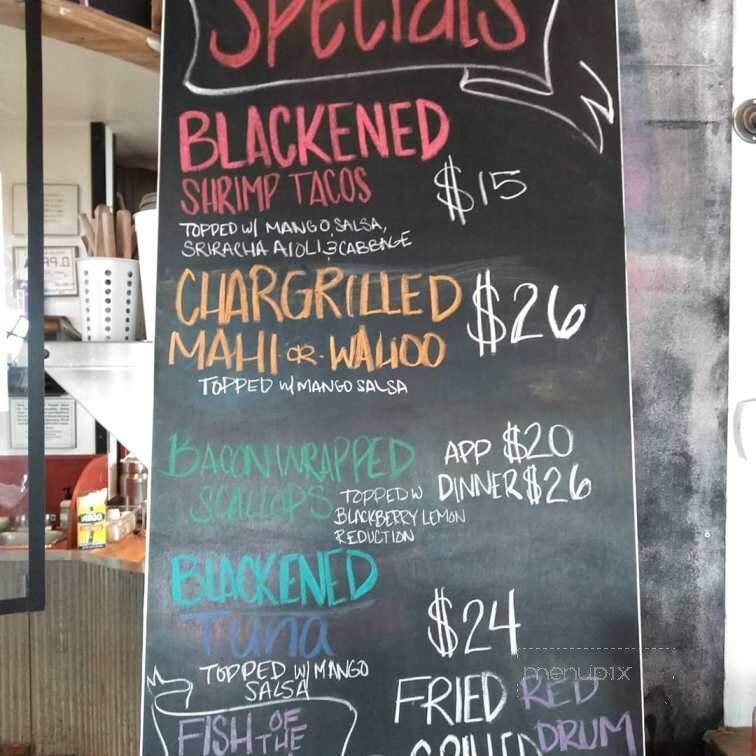 Specials
BLACKENED
SHRIMP TACOS $15
TOPPED W/ MANGO SALSA,
SRIRACHA AIOLI & CABBAGE
CHARGRILLED
MAHI OR WAHOO $26
TOPPED W/ MANGO SALSA
BACON WRAPPED
SCALLOPS
APP $20
DINNER $26
TOPPED W
BLACKBERRY LEMON
REDUCTION
BLACKENED
Tuna $24
TOPPED W/ MANGO
SALSA
FISH OF
THE
FRIED RED
GRILLED DRUM
menupix